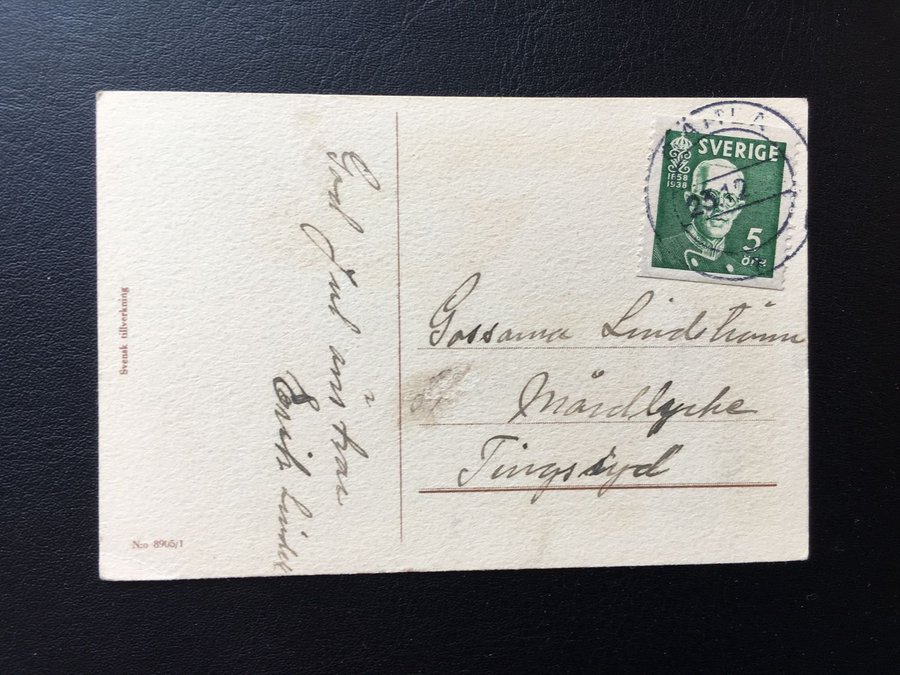 God Jul önskar
Erik Linder
Svensk tillverkning
N:o 8905/1
SVERIGE
1858
1938
5
öre
23.12
Gossarna Lindström
Mårdlycke
Tingsryd